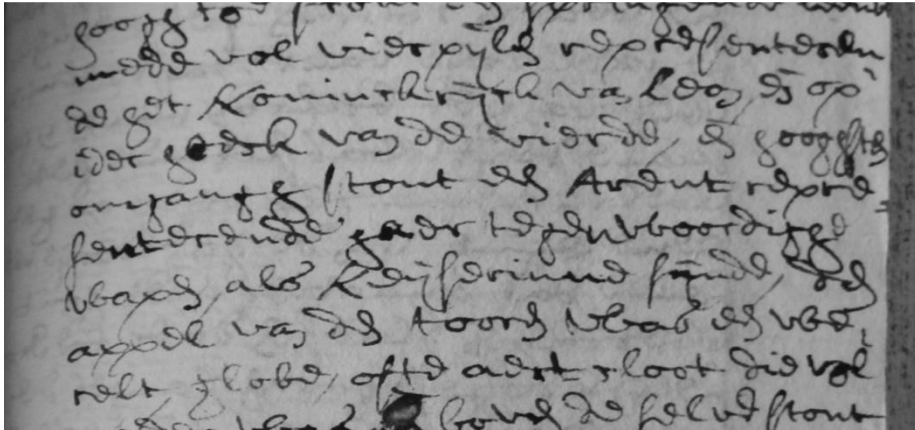 hoogh
mede vol vierpijlen representeren
de het Koninckrijck van Leon, en op
ider hoeck van de vierde, en hooghsten
omganck stont een Arent repre=
senterende haer tegenwoordighe
wapen, als Keijserinne sijnde, den
appel van den toorn was een we=
relt globe, ofte aert cloot die vol
boven de selve stont